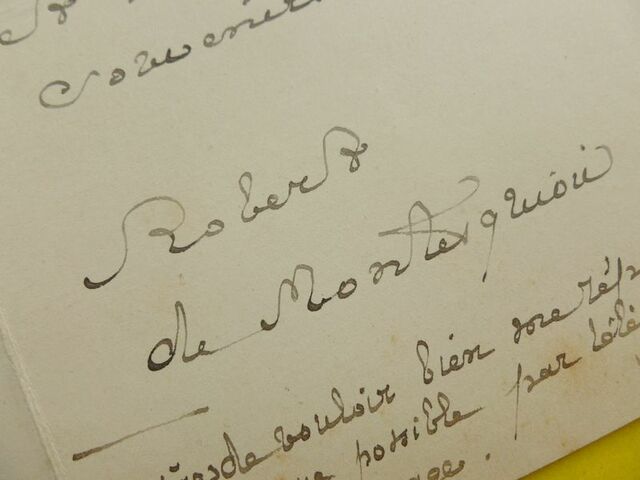 &
Souvenir
Robert
de Montesquiou
de vouloir bien me
possible par télé